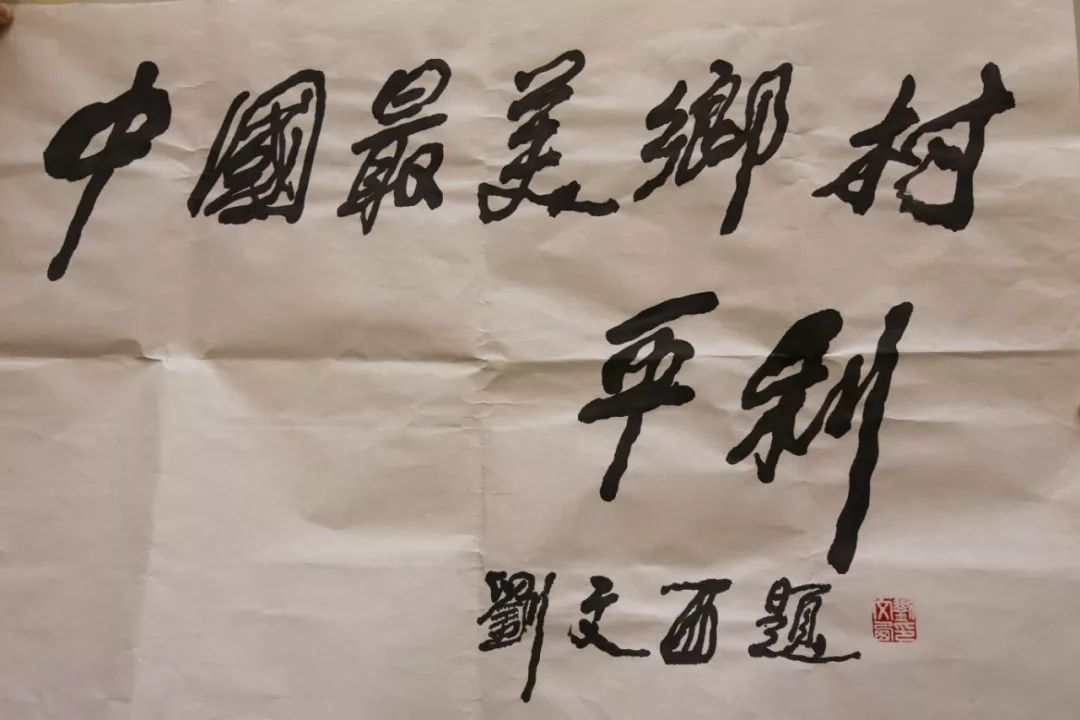 中國最美鄉村
平利
劉文西題